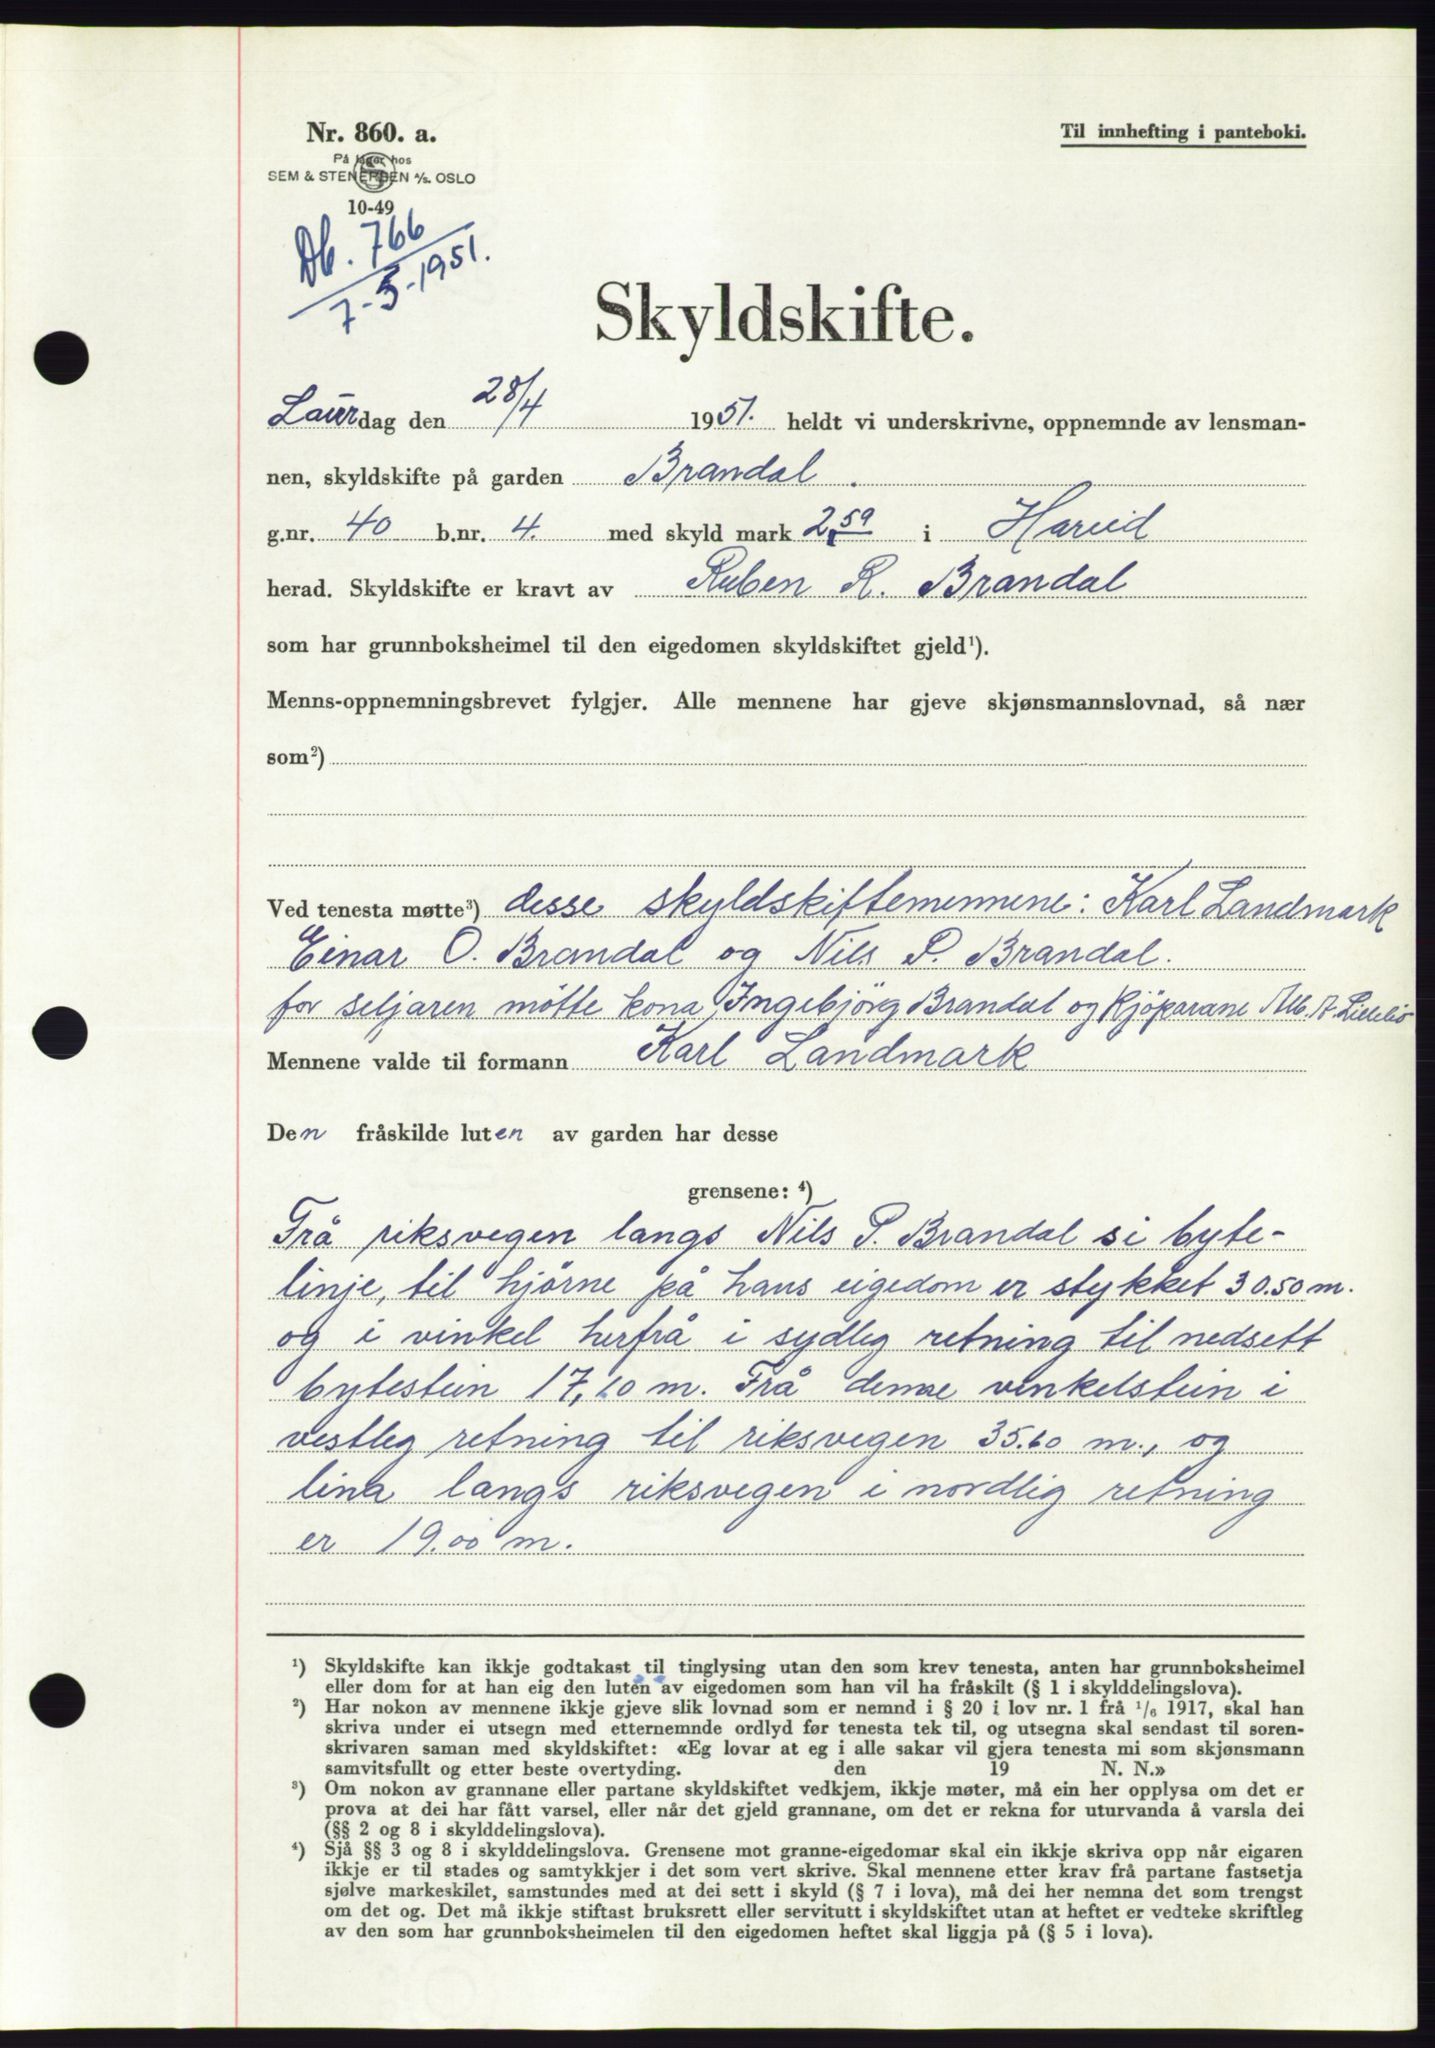 Nr. 860. a.
På lager hos
SEM & STENERSEN A/S. OSLO
10-49
Til innhefting i panteboki.
Db. 766
7-5-1951.
Skyldskifte.
Laurdag den 28/4 1951. heldt vi underskrivne, oppnemnde av lensman-
nen, skyldskifte på garden Brandal.
g.nr. 40 b.nr. 4. med skyld mark 2,59 i Hareid
herad. Skyldskifte er kravt av Ruben R. Brandal
som har grunnboksheimel til den eigedomen skyldskiftet gjeld¹).
Menns-oppnemningsbrevet fylgjer. Alle mennene har gjeve skjønsmannslovnad, så nær
som²)
Ved tenesta møtte³) desse skyldskiftemennene: Karl Landmark
Einar O. Brandal og Nils P. Brandal.
for seljaren mötte kona Ingebjörg Brandal og kjöparane
Mennene valde til formann Karl Landmark
Den fråskilde luten av garden har desse
grensene: ⁴)
Frå riksvegen langs Nils P. Brandal si byte-
linje, til hjörne på hans eigedom er stykket 30.50 m.
og i vinkel herfrå i sydlig retning til nedsett
bytestein 17,60 m. Frå denne vinkelstein i
vestleg retning til riksvegen 35.60 m., og
lina langs riksvegen i nordlig retning
er 19.00 m.
¹) Skyldskifte kan ikkje godtakast til tinglysing utan den som krev tenesta, anten har grunnboksheimel
eller dom for at han eig den luten av eigedomen som han vil ha fråskilt (§ 1 i skylddelingslova).
²) Har nokon av mennene ikkje gjeve slik lovnad som er nemnd i § 20 i lov nr. 1 frå 1/6 1917, skal han
skriva under ei utsegn med etternemnde ordlyd før tenesta tek til, og utsegna skal sendast til soren-
skrivaren saman med skyldskiftet: «Eg lovar at eg i alle sakar vil gjera tenesta mi som skjønsmann
samvitsfullt og etter beste overtyding. den 19 N. N.»
³) Om nokon av grannane eller partane skyldskiftet vedkjem, ikkje møter, må ein her opplysa om det er
prova at dei har fått varsel, eller når det gjeld grannane, om det er rekna for uturvanda å varsla dei
(§§ 2 og 8 i skylddelingslova).
⁴) Sjå §§ 3 og 8 i skylddelingslova. Grensene mot granne-eigedomar skal ein ikkje skriva opp når eigaren
ikkje er til stades og samtykkjer i det som vert skrive. Skal mennene etter krav frå partane fastsetja
sjølve markeskilet, samstundes med at dei sett i skyld (§ 7 i lova), må dei her nemna det som trengst
om det og. Det må ikkje stiftast bruksrett eller servitutt i skyldskiftet utan at heftet er vedteke skriftleg
av den som har grunnboksheimelen til den eigedomen heftet skal liggja på (§ 5 i lova).